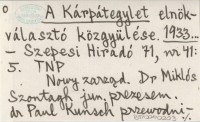 o A Kárpátegylet elnök-
választó közgyülése. 1933...
- Szepesi Hiradó 71, nr 41:
5. TNP
Nowy zarząd. Dr Miklós
Szontagh jun. prezesem.
dr Paul Kunsch przewodni-